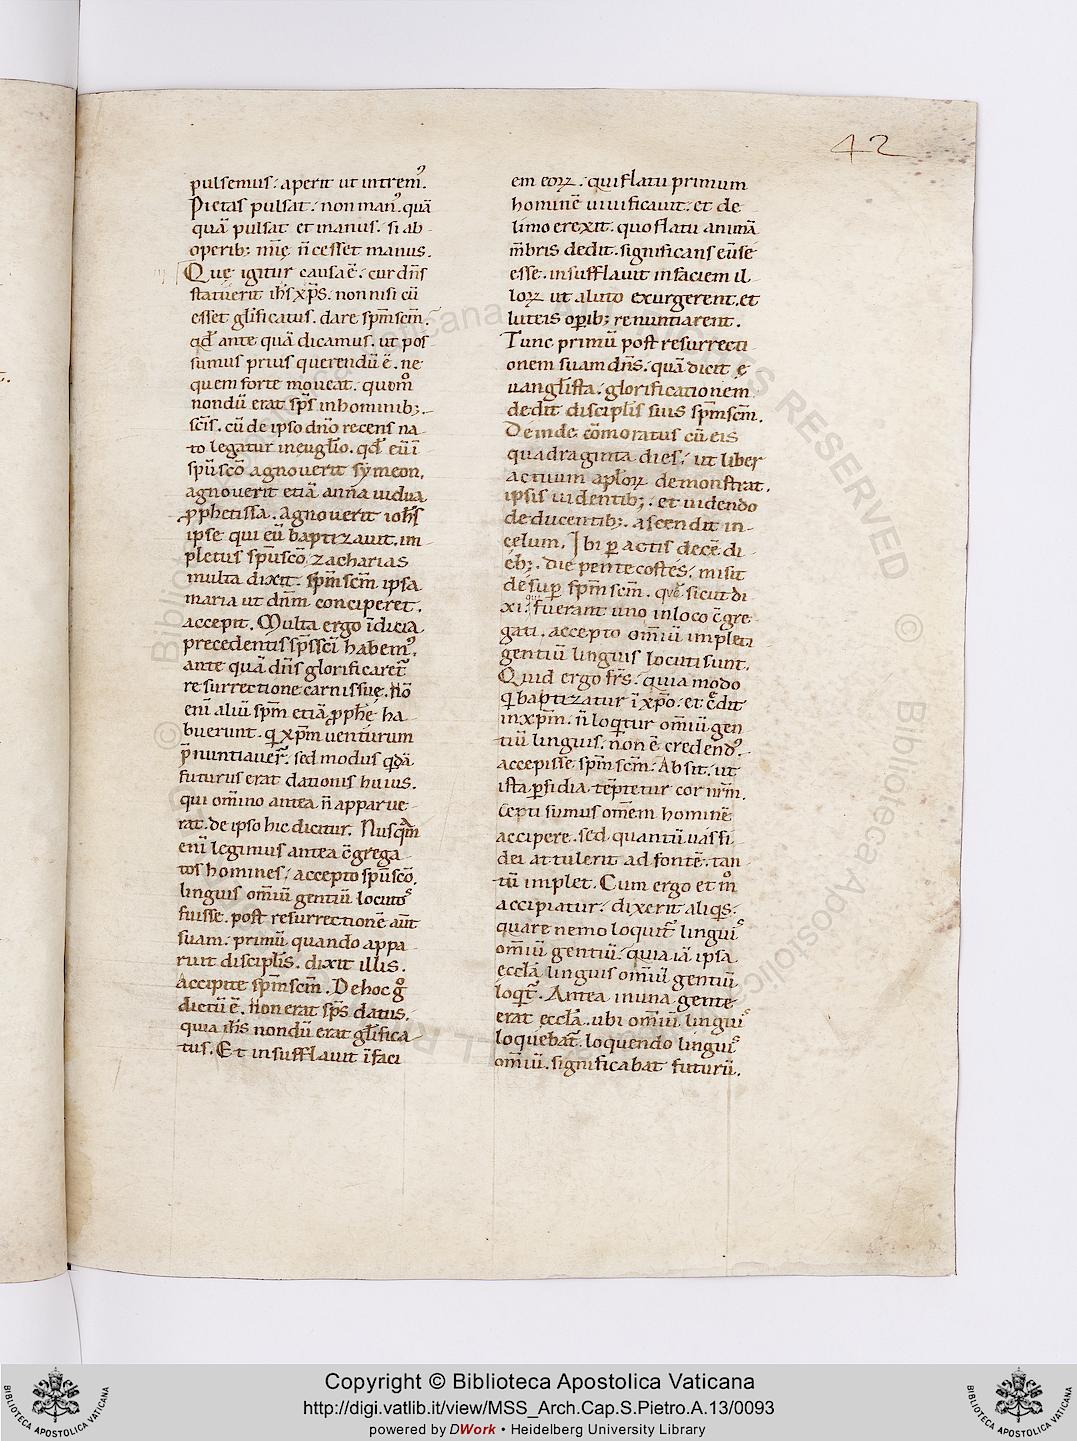 42
pulsemus. aperit ut intrem᷒.
Pietas pulsat. non man᷒. quā
quā pulsat et manus. si ab
operib; mīę n̄ cesset manus.
Quę igitur causa ē. cur dn̄s
statuerit ih̄s xp̄s. non nisi cū
esset gl̄ificatus. dare sp̄m sc̄m.
qd̄ ante quā dicamus. ut pos
sumus prius querendū ē. ne
quem forte moueat. quom̊
nondū erat sp̄s inhominib;.
sc̄is. cū de ipso dn̄o recens na
to legatur ineuḡlio. qd̄ eū ī
sp̄u sc̄o agnouerit symeon.
agnouerit etiā anna uidua
ꝓphetissa. agnouerit ioh̄s
ipse qui eū baptizauit. im
pletus sp̄u sc̄o zacharias
multa dixit. sp̄m sc̄m ipsa
maria ut dn̄m conciperet.
accepit. Multa ergo īdicia
precedentis sp̄s sc̄i habem᷒.
ante quā dn̄s glorificaret᷑
resurrectione carnis suę. Nō
enī aliū sp̄m etiā ꝓphę̄ ha
buerunt. q xp̄m uenturum
p̄nuntiauer̄. sed modus qdā
futurus erat dationis huius.
qui om̄ino antea n̄ apparue
rat. de ipso hic dicitur. Nusqm̄
enī legimus antea c̄grega
tos homines. accepto sp̄u sc̄o.
linguis om̄iū gentiū locutos
fuisse. post resurrectionē aūt
suam. primū quando appa
ruit disciplīs. dixit illis.
Accipite sp̄m sc̄m. De hoc g̊
dictū ē. Non erat sp̄s datus.
quia ih̄s nondū erat gl̄ifica
tus. Et insufflauit īfaci
em eoꝝ. qui flatu primum
hominē uiuificauit. et de
limo erexit. quo flatu animā
mēbris dedit. significans eū se
esse. insufflauit infaciem il
loꝝ ut aluto exurgerent. et
luteis oꝑib; renuntiarent.
Tunc primū post resurrecti
onem suam dn̄s. quā dicit ę
uangl̄ista. glorificationem
dedit disciplīs suis sp̄m sc̄m.
Deinde cōmoratus cū eis
quadraginta dies. ut liber
actuum apl̄oꝝ demonstrat.
ipsis uidentib;. et uidendo
deducentib;. ascendit in
cęlum. Ibi ꝑactis decē di
eb;. die pentecostes. misit
desuꝑ sp̄m sc̄m. quē sicut di
xi. qui fuerant uno inloco c̄gre
gati. accepto om̄iū impleti
gentiū linguis locuti sunt.
Quid ergo fr̄s. quia modo
q baptizatur ī xp̄o. et c̄dit
inxp̄m. n̄ loqitur om̄iū gen
tiū linguis. non ē credend᷒.
accepisse sp̄m sc̄m. Absit. ut
ista ꝑfidia tēptetur cor nr̄m.
Certi sumus om̄em hominē
accipere. sed quantū uas fi
dei attulerit ad fontē. tan
tū implet. Cum ergo et m̊
accipiatur. dixerit aliqis.
quare nemo loquit᷑ linguis
om̄iū gentiū. quia iā ipsa
eccl̄a linguis om̄iū gentiū
loqit᷑. Antea inuna gente
erat eccl̄a. ubi om̄iū linguis
loquebat᷑. loquendo linguis
om̄iū. significabat futurū.
Copyright © Biblioteca Apostolica Vaticana
http://digi.vatlib.it/view/MSS_Arch.Cap.S.Pietro.A.13/0093
powered by DWork • Heidelberg University Library
BIBLIOTECA APOSTOLICA VATICANA
BIBLIOTECA APOSTOLICA VATICANA